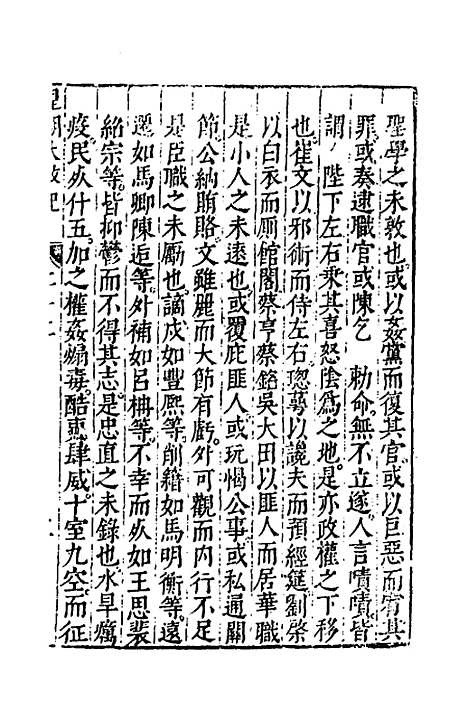 聖學之未敦也或以姦黨而復其官或以巨惡而宥其
罪或奏逮職官或陳乞 勅命無不立遂人言嘖嘖皆
謂 陛下左右乘其喜怒陰為之地是亦政權之下移
也崔文以邪術而侍左右璁萼以讒夫而預經筵劉棨
以白衣而厠館閣蔡亨蔡銘吳大田以匪人而居華職
是小人之未遠也或覆庇匪人或玩愒公事或私通關
節公納賄賂文雖麗而大節有虧外可觀而內行不足
是臣職之未勵也謫戍如豐熙等削籍如馬明衡等遠
遷如馬卿陳逅等外補如呂柟等不幸而死如王思裴
紹宗等皆抑鬱而不得其志是忠直之未錄也水旱癘
疫民死什五加之權姦煽毒酷吏肆威十室九空而征
皇明大政記